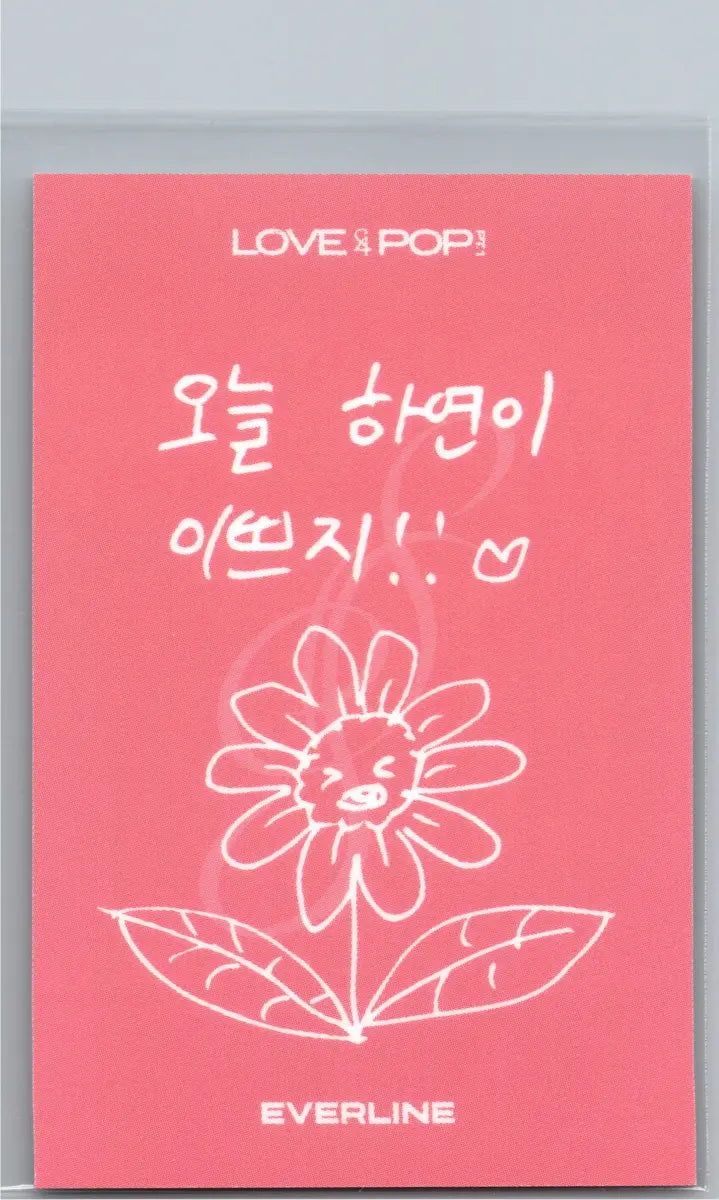 LOVE POP
오늘 하연이
이쁘지!! ♡
EVERLINE